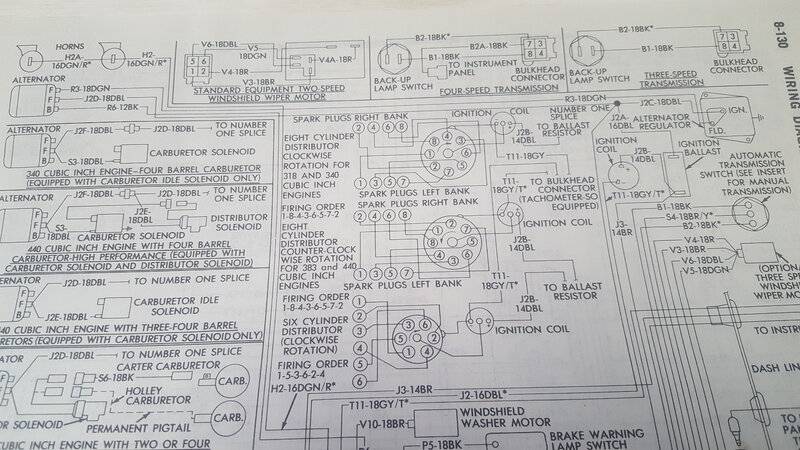 8-130 WIRING DIA
HORNS
H2A-16DGN/R*
H2-16DGN/R*
V6-18DBL
V5-18DGN
V4A-1BR
V4-1BR
V3-18BR
5 6
1 2
STANDARD EQUIPMENT TWO-SPEED
WINDSHIELD WIPER MOTOR
B2-18BK*
B2A-18BK
B1-18BK
TO INSTRUMENT
PANEL
BACK-UP
LAMP SWITCH
7 3
8 4
BULKHEAD
CONNECTOR
FOUR-SPEED TRANSMISSION
B2-18BK*
B1-18BK
BACK-UP
LAMP SWITCH
7 3
8 4
BULKHEAD
CONNECTOR
THREE-SPEED
TRANSMISSION
ALTERNATOR
F
F
B
R3-18DGN
J2D-18DBL
R6-12BK
ALTERNATOR
F
F
B
J2F-18DBL
J2D-18DBL
TO NUMBER
ONE SPLICE
S3-18DBL
CARBURETOR SOLENOID
340 CUBIC INCH ENGINE—FOUR BARREL CARBURETOR
(EQUIPPED WITH CARBURETOR IDLE SOLENOID ONLY)
ALTERNATOR
F
F
B
J2F-18DBL
J2D-18DBL
TO NUMBER
ONE SPLICE
J2E-18DBL
S3-18DBL
CARBURETOR SOLENOID
DISTRIBUTOR
SOLENOID
440 CUBIC INCH ENGINE WITH FOUR BARREL
CARBURETOR-HIGH PERFORMANCE (EQUIPPED WITH
CARBURETOR SOLENOID AND DISTRIBUTOR SOLENOID)
ERNATOR
J2D-18DBL
TO NUMBER ONE SPLICE
CARBURETOR IDLE
SOLENOID
40 CUBIC INCH ENGINE WITH THREE-FOUR BARREL
RETORS (EQUIPPED WITH CARBURETOR SOLENOID ONLY)
ALTERNATOR
J2D-18DBL
TO NUMBER ONE SPLICE
CARTER CARBURETOR
S6-18BK
CARB.
HOLLEY
CARBURETOR
CARB.
OR SOLENOID
PERMANENT PIGTAIL
CUBIC INCH ENGINE WITH TWO OR FOUR
SPARK PLUGS RIGHT BANK
2 4 6 8
EIGHT CYLINDER
DISTRIBUTOR
CLOCKWISE
ROTATION FOR
318 AND 340
CUBIC INCH
ENGINES
1 3 5 7
SPARK PLUGS LEFT BANK
FIRING ORDER
1-8-4-3-6-5-7-2
IGNITION
COIL
J2B-14DBL
TO BALLAST
RESISTOR
T11-18GY/T*
SPARK PLUGS RIGHT BANK
2 4 6 8
EIGHT
CYLINDER
DISTRIBUTOR
COUNTER-CLOCK
WISE ROTATION
FOR 383 and 440
CUBIC INCH
ENGINES
1 3 5 7
SPARK PLUGS LEFT BANK
FIRING ORDER
1-8-4-3-6-5-7-2
TO BULKHEAD
CONNECTOR
(TACHOMETER-SO
EQUIPPED)
IGNITION COIL
J2B-14DBL
T11-18GY/T*
TO BALLAST
RESISTOR
J2B-14DBL
IGNITION COIL
1
2
3
4
5
6
SIX CYLINDER
DISTRIBUTOR
(CLOCKWISE
ROTATION)
FIRING ORDER
1-5-3-6-2-4
H2-16DGN/R*
R3-18DGN
NUMBER ONE
SPLICE
J2C-18DBL
J2A-16DBL
ALTERNATOR
REGULATOR
IGN.
FLD.
IGNITION
COIL
J2B-14DBL
IGNITION
BALLAST
T11-18GY/T*
AUTOMATIC
TRANSMISSION
SWITCH (SEE INSERT
FOR MANUAL
TRANSMISSION)
B1-18BK
S4-18BR/Y*
B2-18BK*
J3-14BR
V4-1BR
V3-18BR
V6-18DBL
V5-18DGN
(OPTION
THREE SP
WINDSHI
WIPER MO
TO INSTR
DASH LIN
J3-14BR
J2-16DBL*
T11-18GY/T*
V10-18BR
WINDSHIELD
WASHER MOTOR
P5-18BK
BRAKE WARNING
LAMP SWITCH
TO IN
PA
TR